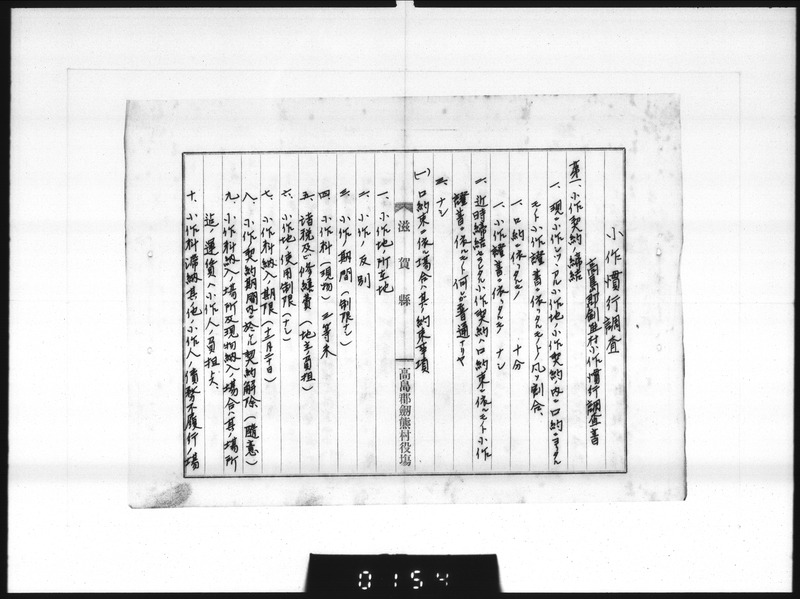 小作慣行調査
高島郡剣熊村小作慣行調査書
第一、小作契約ノ締結
一、現ニ小作シツヽアル小作地ノ小作契約ノ内口約ニヨリタル
モノト小作證書ニ依リタルモノトノ凡ソ割合、
一、口約ニ依リタルモノ 十分
一、小作證書ニ依リタルモノ ナシ
二、近時締結セラレタル小作契約ハ口約束ニ依ルモノト小作
證書ニ依ルモノト何レガ普通ナリヤ
三、ナシ
(一)口約束ニ依ル場合ハ其ノ約束事項
滋賀縣
高島郡劔熊村役塲
一、小作地所在地
二、小作ノ反別
三、小作ノ期間(制限ナシ)
四、小作料(現物)三等米
五、諸税及ビ修繕費(地主ノ負担)
六、小作地ノ使用制限(ナシ)
七、小作料納入ノ期限(十二月二十日)
八、小作契約期間内ニ於ケル契約解除(隨意)
九、小作料納入ノ場所及現物納入ノ場合ハ其場所
迄ノ運賃ハ小作人ノ負担トス、
十、小作料滞納其他ノ小作人ノ債務不履行ノ場
0154